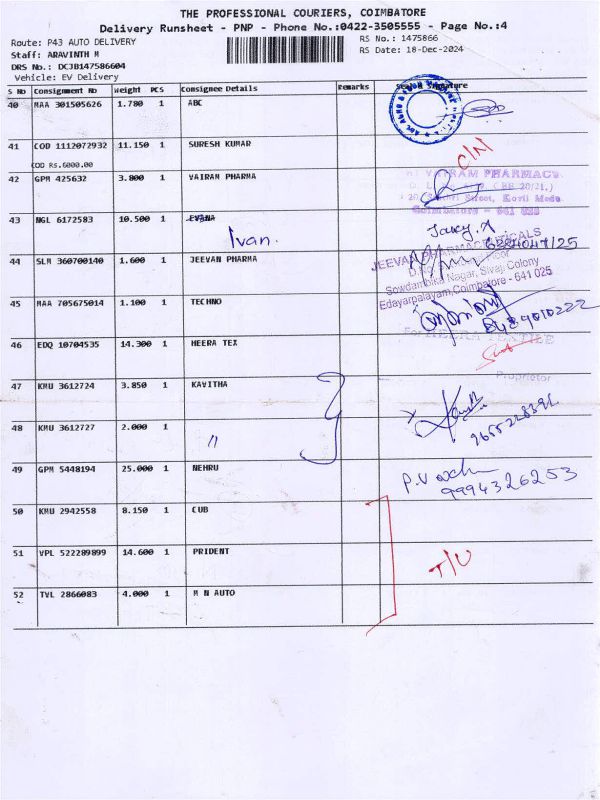 THE PROFESSIONAL COURIERS, COIMBATORE
Delivery Runsheet - PNP - Phone No.:0422-3505555 - Page No.:4
Route: P43 AUTO DELIVERY
RS No.: 1475866
Staff: ARAVINTH M
RS Date: 18-Dec-2024
DRS No.: DCJB147586604
Vehicle: EV Delivery
S No Consignment No Weight PCS Consignee Details Remarks Seal & Signature
40 MAA 301505626 1.780 1 ABC
41 COD 1112072932 11.150 1 SURESH KUMAR C/N
COD Rs.6000.00
42 GPM 425632 3.800 1 VAIRAM PHARMA
VAIRAM PHARMACY
Street, Kovil Medu
Coimbatore - 641 025
43 NGL 6172583 10.500 1
Ivan.
44 SLM 360700140 1.600 1 JEEVAN PHARMA
JEEVAN PHARMACEUTICALS
Sowdambika Nagar, Sivaji Colony
Edayarpalayam, Coimbatore - 641 025
45 MAA 705675014 1.100 1 TECHNO
46 EDQ 10704535 14.300 1 HEERA TEX
For HEERA TEXTILE
Proprietor
47 KMU 3612724 3.850 1 KAVITHA
48 KMU 3612727 2.000 1 〃
49 GPM 5448194 25.000 1 NEHRU
9994326253
50 KMU 2942558 8.150 1 CUB
51 VPL 522289899 14.600 1 PRIDENT T/U
52 TVL 2866083 4.000 1 M N AUTO